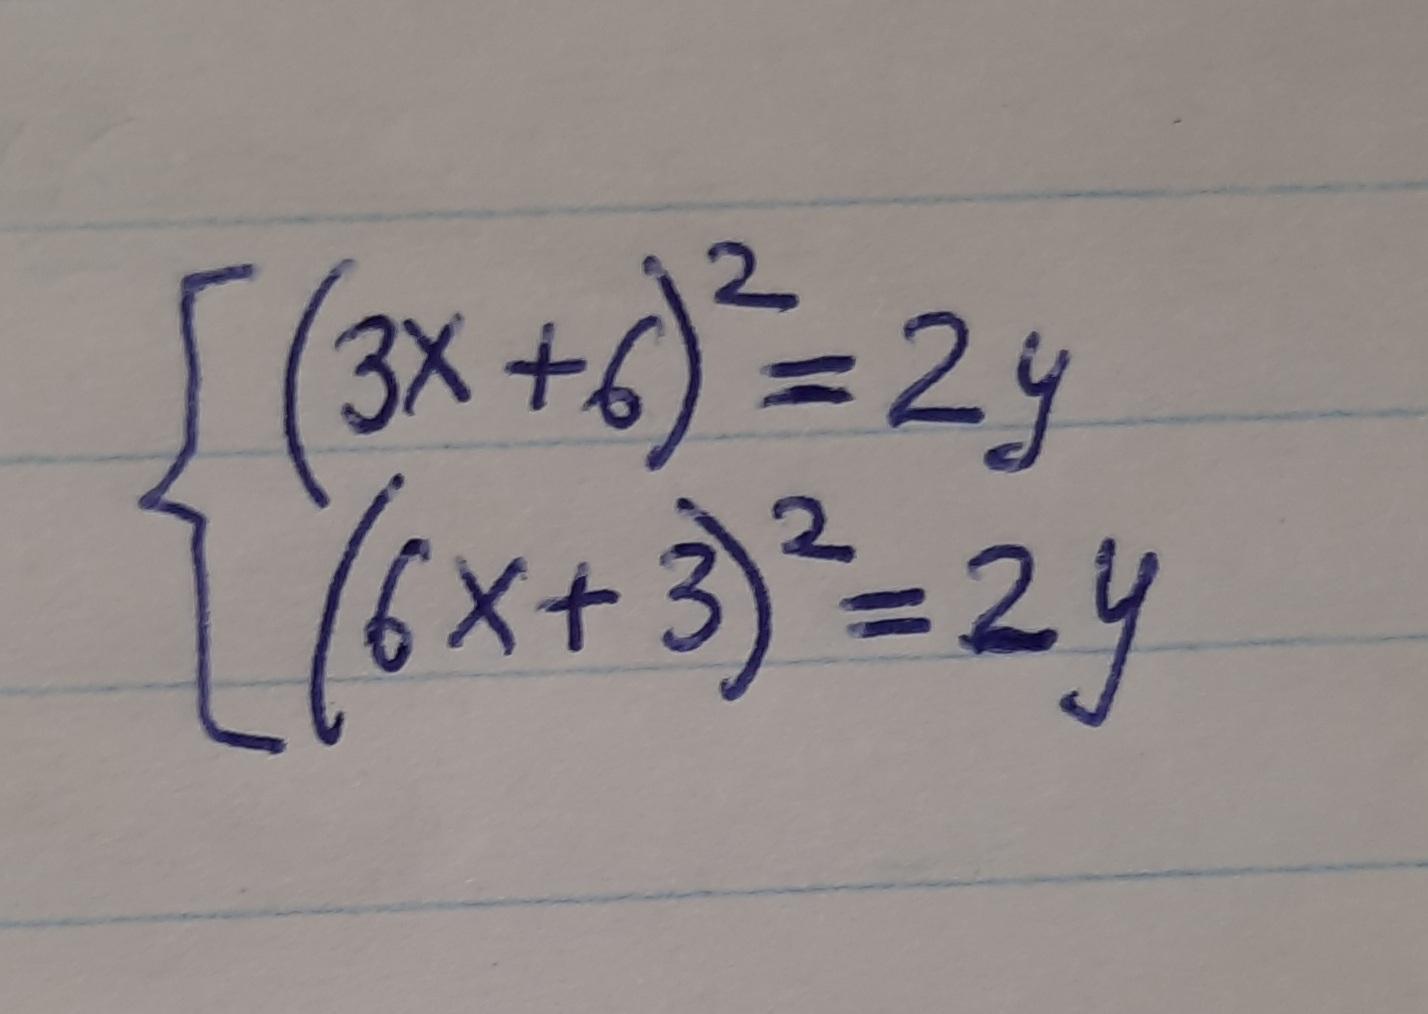 (3x+6)²=2y
(6x+3)²=2y